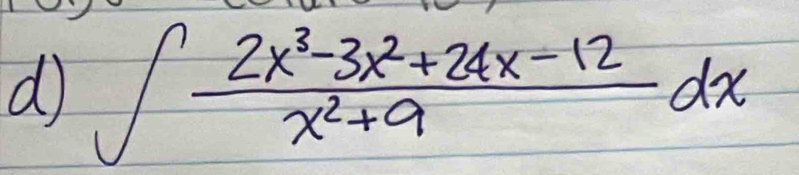 d) ∫ (2x³-3x²+24x-12)/(x²+9) dx